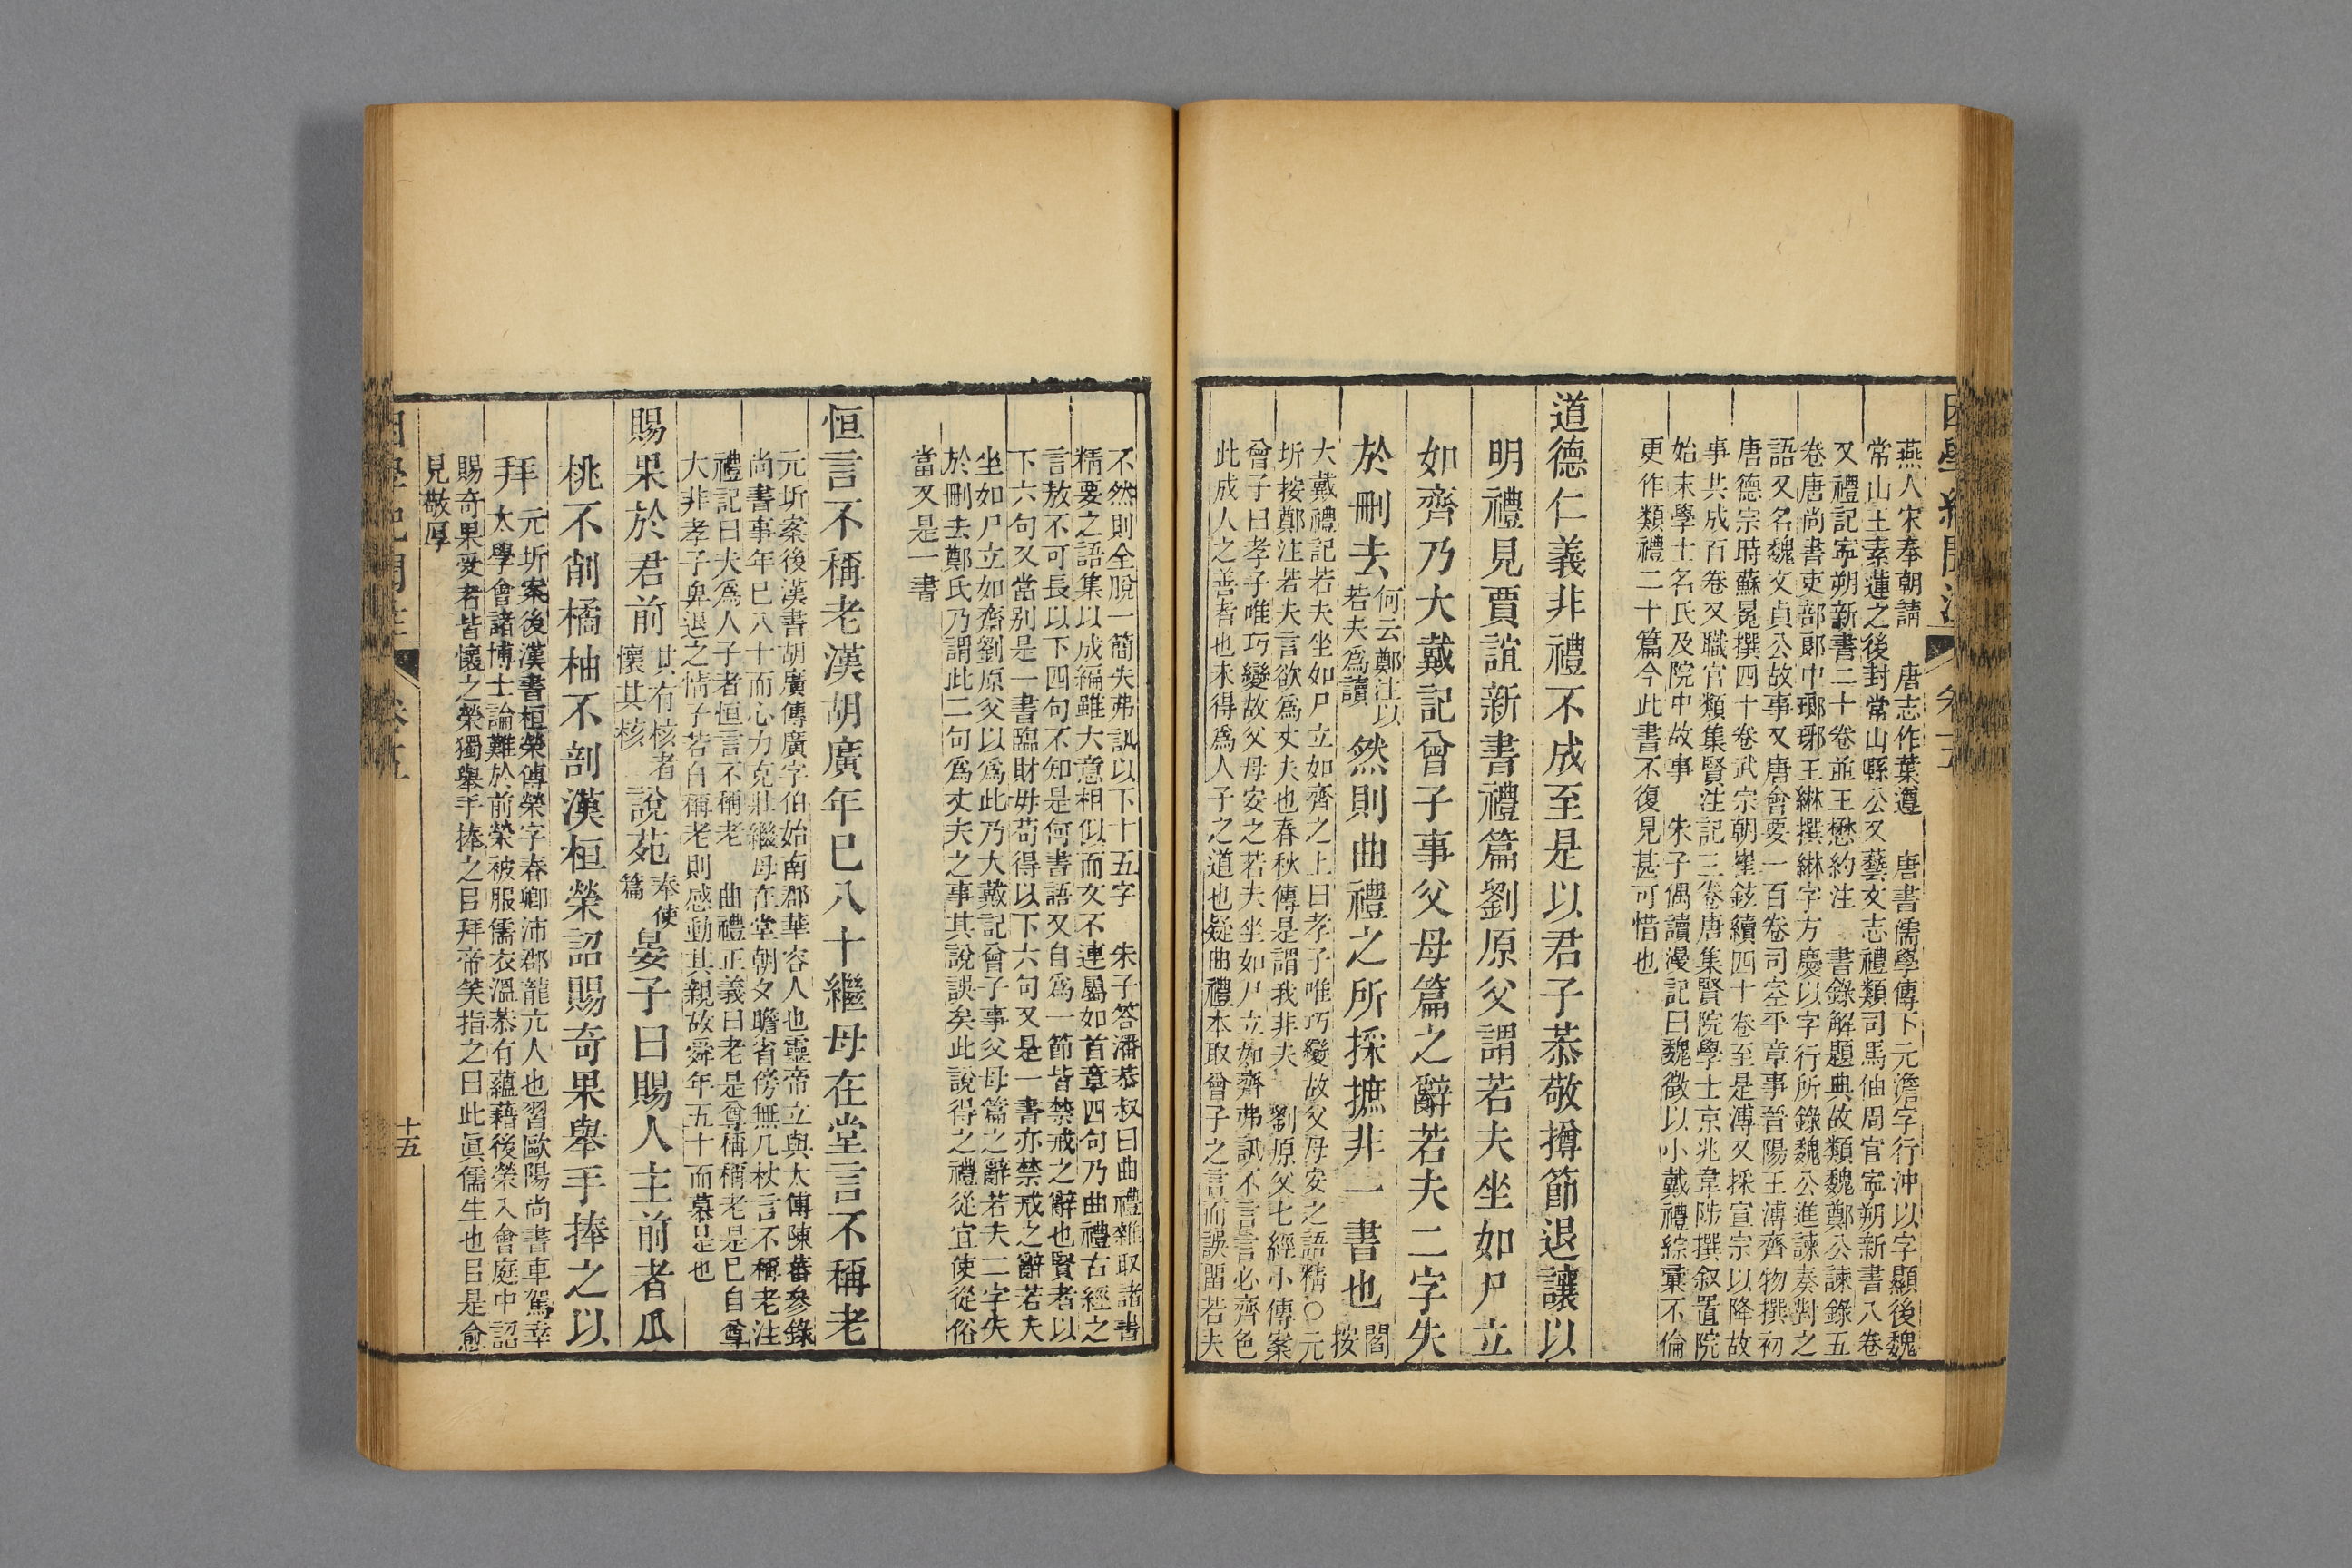 燕人宋奉朝請　唐志作葉遵　唐書儒學傳下元澹字行沖以字顯後魏
常山王素蓮之後封常山縣公又藝文志禮類司馬伷周官寧朔新書八卷
又禮記寧朔新書二十卷並王懋約注　書錄解題典故類魏鄭公諫錄五
卷唐尚書吏部郎中瑯琊王綝撰綝字方慶以字行所錄魏公進諫奏對之
語又名魏文貞公故事又唐會要一百卷司空平章事晉陽王溥齊物撰初
唐德宗時蘇冕撰四十卷武宗朝崔鉉續四十卷至是溥又採宣宗以降故
事共成百卷又職官類集賢注記三卷唐集賢院學士京兆韋陟撰叙置院
始末學士名氏及院中故事　朱子偶讀漫記曰魏徵以小戴禮綜彙不倫
更作類禮二十篇今此書不復見甚可惜也
道德仁義非禮不成至是以君子恭敬撙節退讓以
明禮見賈誼新書禮篇劉原父謂若夫坐如尸立
如齊乃大戴記曾子事父母篇之辭若夫二字失
於刪去何云鄭注以若夫爲讀然則曲禮之所採摭非一書也閻按
大戴禮記若夫坐如尸立如齊之上曰孝子唯巧變故父母安之語精○元
圻按鄭注若夫言欲爲丈夫也春秋傳是謂我非夫　劉原父七經小傳案
曾子曰孝子唯巧變故父母安之若夫坐如尸立如齊弗訊不言言必齊色
此成人之善者也未得爲人子之道也疑曲禮本取曾子之言而誤留若夫
不然則全脫一簡失弗訊以下十五字　朱子答潘恭叔曰曲禮雜取諸書
精要之語集以成編雖大意相似而文不連屬如首章四句乃曲禮古經之
言敖不可長以下四句不知是何書語又自爲一節皆禁戒之辭也賢者以
下六句又當別是一書臨財毋苟得以下六句又是一書亦禁戒之辭若夫
坐如尸立如齊劉原父以爲此乃大戴記曾子事父母篇之辭若夫二字失
於刪去鄭氏乃謂此二句爲丈夫之事其說誤矣此說得之禮從宜使從俗
當又是一書
恒言不稱老漢胡廣年已八十繼母在堂言不稱老
元圻案後漢書胡廣傳廣字伯始南郡華容人也靈帝立與太傅陳蕃參錄
尚書事年已八十而心力克壯繼母在堂朝夕瞻省傍無几杖言不稱老注
禮記曰夫爲人子者恒言不稱老　曲禮正義曰老是尊稱稱老是已自尊
大非孝子卑退之情子若自稱老則感動其親故舜年五十而慕是也
賜果於君前其有核者懷其核說苑奉使篇晏子曰賜人主前者瓜
桃不削橘柚不剖漢桓榮詔賜奇果舉手捧之以
拜元圻案後漢書桓榮傳榮字春卿沛郡龍亢人也習歐陽尚書車駕幸
太學會諸博士論難於前榮被服儒衣溫恭有蘊藉後榮入會庭中詔
賜奇果受者皆懷之榮獨舉手捧之㠯拜帝笑指之曰此眞儒生也㠯是愈
見敬厚
十五